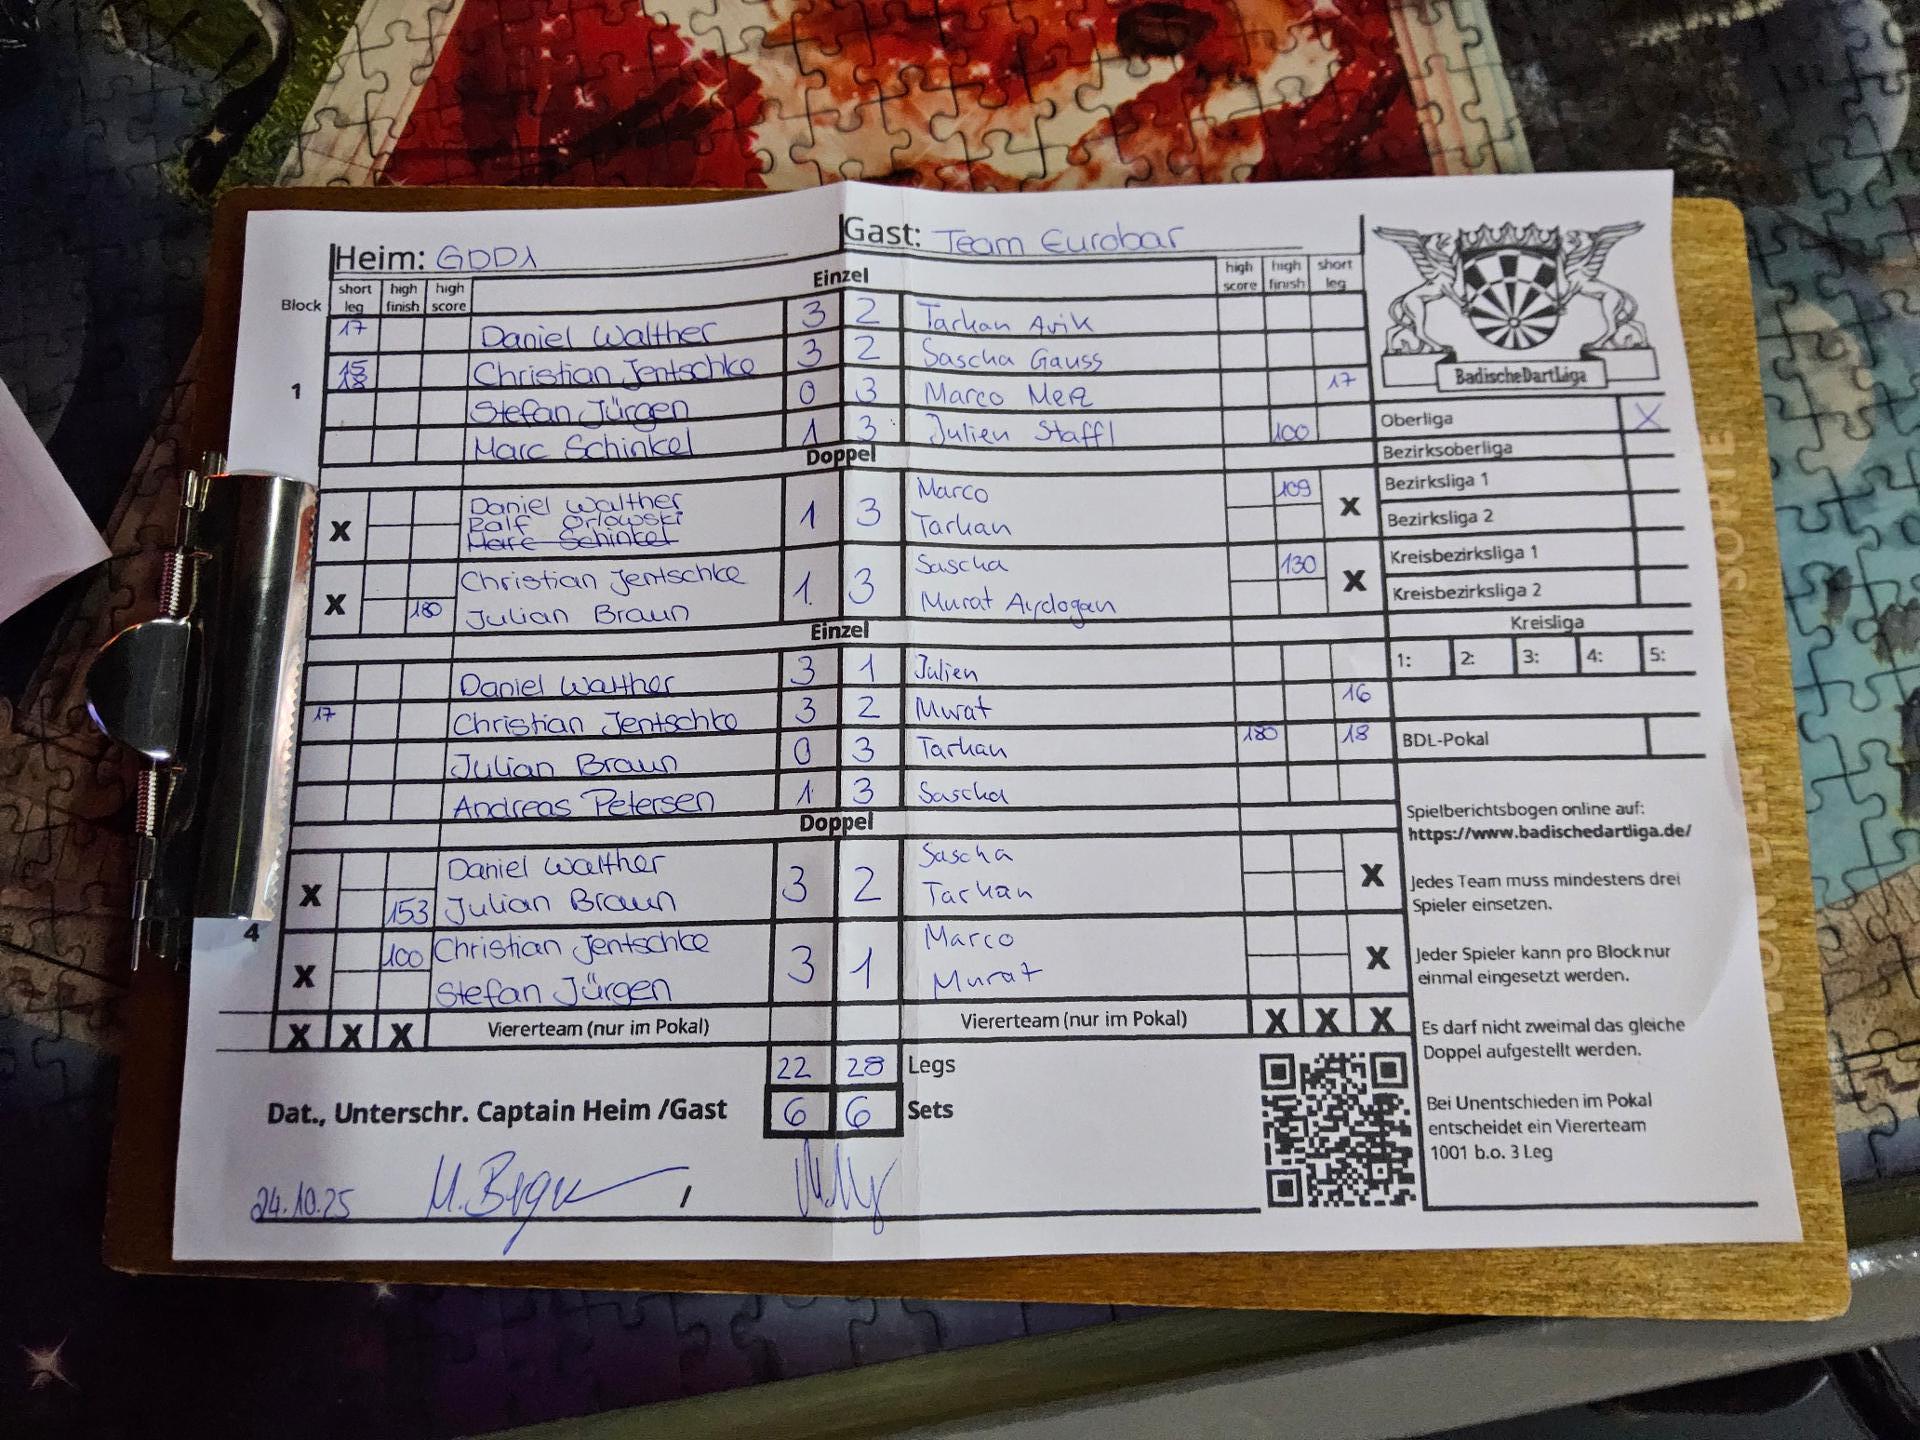 Heim: GDD1 Gast: Team Eurobar
Einzel
Block short leg high finish high score high score high finish short leg
17 Daniel Walther 3 2 Tarkan Avik
15 18 Christian Jentschke 3 2 Sascha Gauss
1 Stefan Jürgen 0 3 Marco Merz 17
Marc Schinkel 1 3 Julien Staffl 100
Doppel
X Daniel Walther 1 3 Marco 109 X
Ralf Orlowski Tarkan
Marc Schinkel
X Christian Jentschke 1 3 Sascha 130 X
180 Julian Braun Murat Aydogan
Einzel
Daniel Walther 3 1 Julien
17 Christian Jentschke 3 2 Murat 16
Julian Braun 0 3 Tarkan 180 18
Andreas Petersen 1 3 Sascha
Doppel
X Daniel Walther 3 2 Sascha X
153 Julian Braun Tarkan
4
X 100 Christian Jentschke 3 1 Marco X
Stefan Jürgen Murat
X X X Viererteam (nur im Pokal) Viererteam (nur im Pokal) X X X
22 28 Legs
Dat., Unterschr. Captain Heim /Gast 6 6 Sets
24.10.25 /
BadischeDartLiga
Oberliga X
Bezirksoberliga
Bezirksliga 1
Bezirksliga 2
Kreisbezirksliga 1
Kreisbezirksliga 2
Kreisliga
1: 2: 3: 4: 5:
BDL-Pokal
Spielberichtsbogen online auf:
https://www.badischedartliga.de/
Jedes Team muss mindestens drei
Spieler einsetzen.
Jeder Spieler kann pro Block nur
einmal eingesetzt werden.
Es darf nicht zweimal das gleiche
Doppel aufgestellt werden.
Bei Unentschieden im Pokal
entscheidet ein Viererteam
1001 b.o. 3 Leg